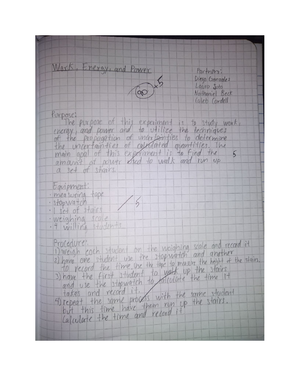 Work, Energy, and Power
Partners:
Diego
Nathaniel
Caleb
+5
Purpose:
The purpose of this experiment is to study work,
energy, and power and to utilize the techniques
of the propagation of uncertainties to determine
the uncertainties of calculated quantities. The
main goal of this experiment is to find the
amount of power used to walk and run up
a set of stairs.
5
Equipment:
measuring tape
stopwatch
1 set of stairs
weighing scale
4 willing students
5
Procedure:
1) Weigh each student on the weighing scale and record it
2) Have one student use the stopwatch and another
to record the time. Use the tape to measure the height of the stairs.
3) Have the first student to walk up the stairs
and use the stopwatch to calculate the time it
takes and record it.
4) Repeat the same process with the same student
but this time have them run up the stairs.
Calculate the time and record it.